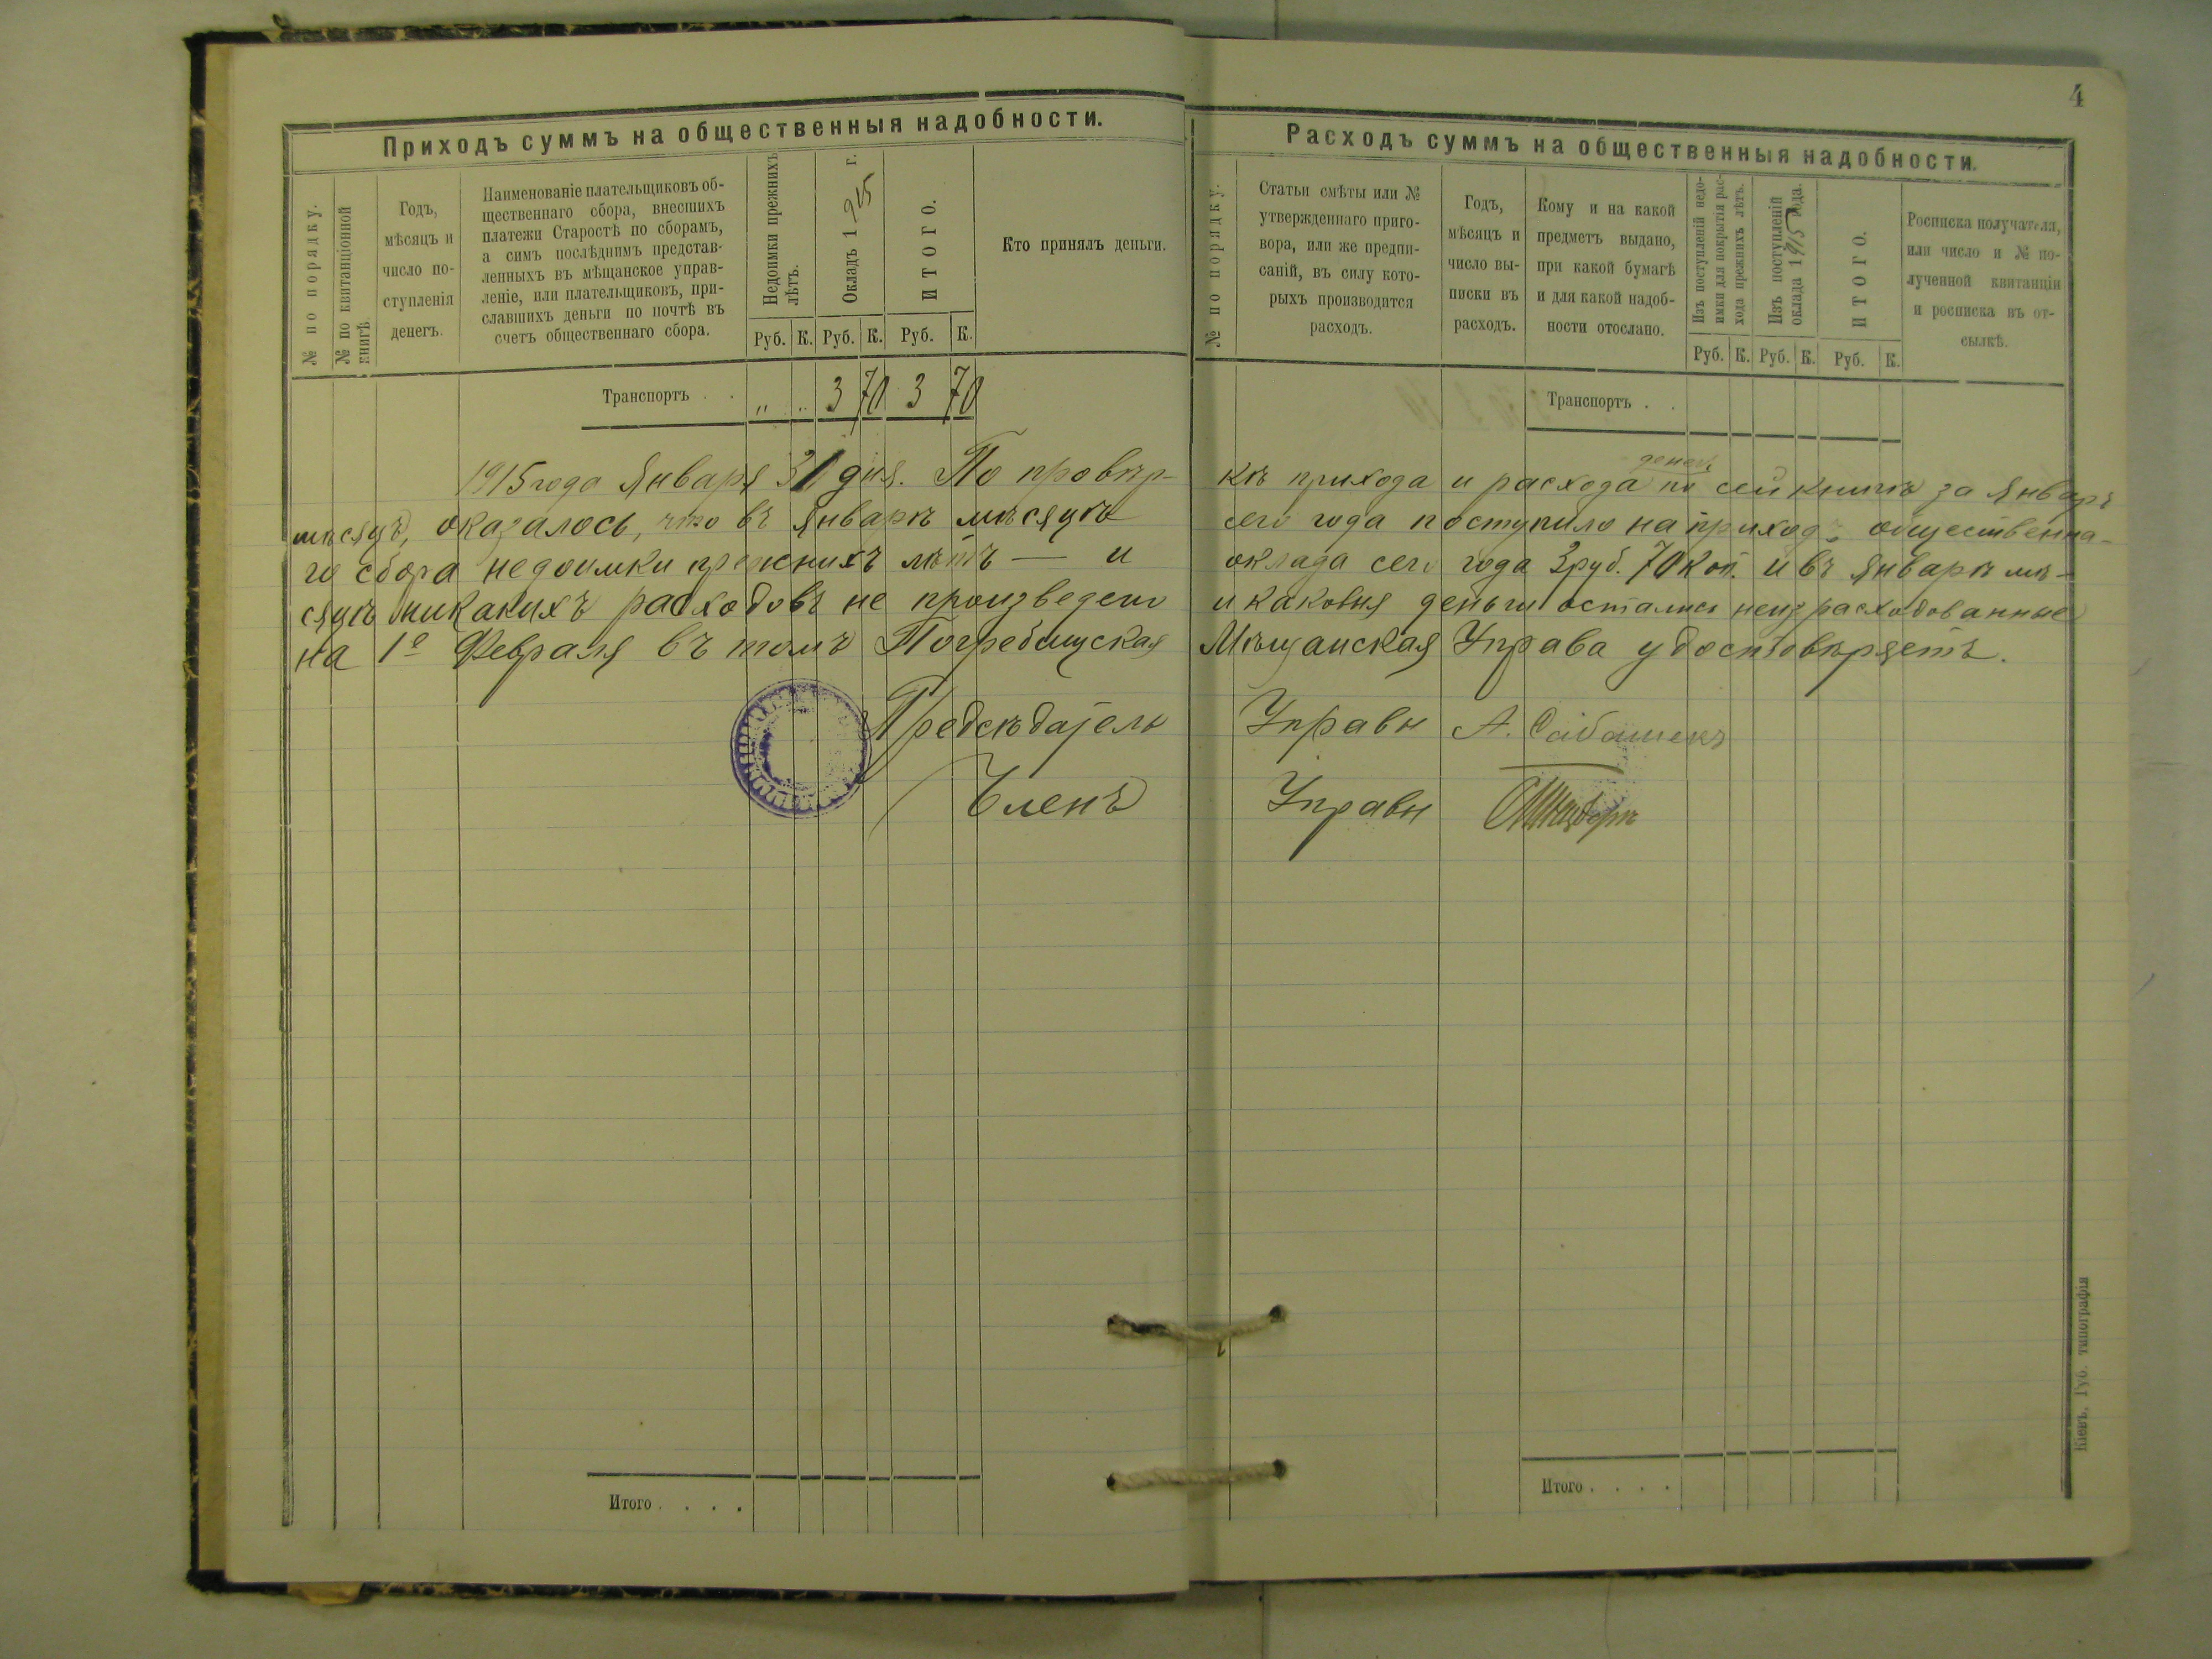 4
Приходъ суммъ на общественныя надобности.
№ по порядку.
№ по квитанціонной
книгѣ.
Годъ,
мѣсяцъ и
число по-
ступленія
денегъ.
Наименованіе плательщиковъ об-
щественнаго сбора, внесшихъ
платежи Старостѣ по сборамъ,
а симъ послѣднимъ представ-
ленныхъ въ мѣщанское управ-
леніе, или плательщиковъ, при-
славшихъ деньги по почтѣ въ
счетъ общественнаго сбора.
Недоимки прежнихъ
лѣтъ.
Окладъ 1915 г.
ИТОГО.
Кто принялъ деньги.
Руб. К. Руб. К. Руб. К.
Транспортъ . . „ „ 3 70 3 70
Расходъ суммъ на общественныя надобности.
№ по порядку.
Статьи смѣты или №
утвержденнаго приго-
вора, или же предпи-
саній, въ силу кото-
рыхъ производится
расходъ.
Годъ,
мѣсяцъ и
число вы-
писки въ
расходъ.
Кому и на какой
предметъ выдано,
при какой бумагѣ
и для какой надоб-
ности отослано.
Изъ поступленій недо-
имки для покрытія рас-
хода прежнихъ лѣтъ.
Изъ поступленій
оклада 1915 года.
ИТОГО.
Росписка получателя,
или число и № по-
лученной квитанціи
и росписка въ от-
сылкѣ.
Руб. К. Руб. К. Руб. К.
Транспортъ . .
денегъ
1915 года Января 31 дня. По провѣр- кѣ прихода и расхода по сей книгѣ за Январь
мѣсяцъ, оказалось, что въ Январѣ мѣсяцѣ сего года поступило на приходъ: общественна-
го сбора недоимки прежнихъ лѣтъ — и оклада сего года 3 руб. 70 коп. и въ Январѣ мѣ-
сяцѣ никакихъ расходовъ не произведено и каковыя деньги остались неизрасходованные
на 1е Февраля въ томъ Погребищская Мѣщанская Управа удостовѣряетъ.
Предсѣдатель Управы А.
Членъ Управы
Итого . . . .
Итого . . . .
Кіевъ. Губ. типографія